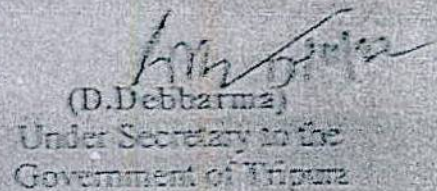 (D.Debbarma)
Under Secretary to the
Government of Tripura